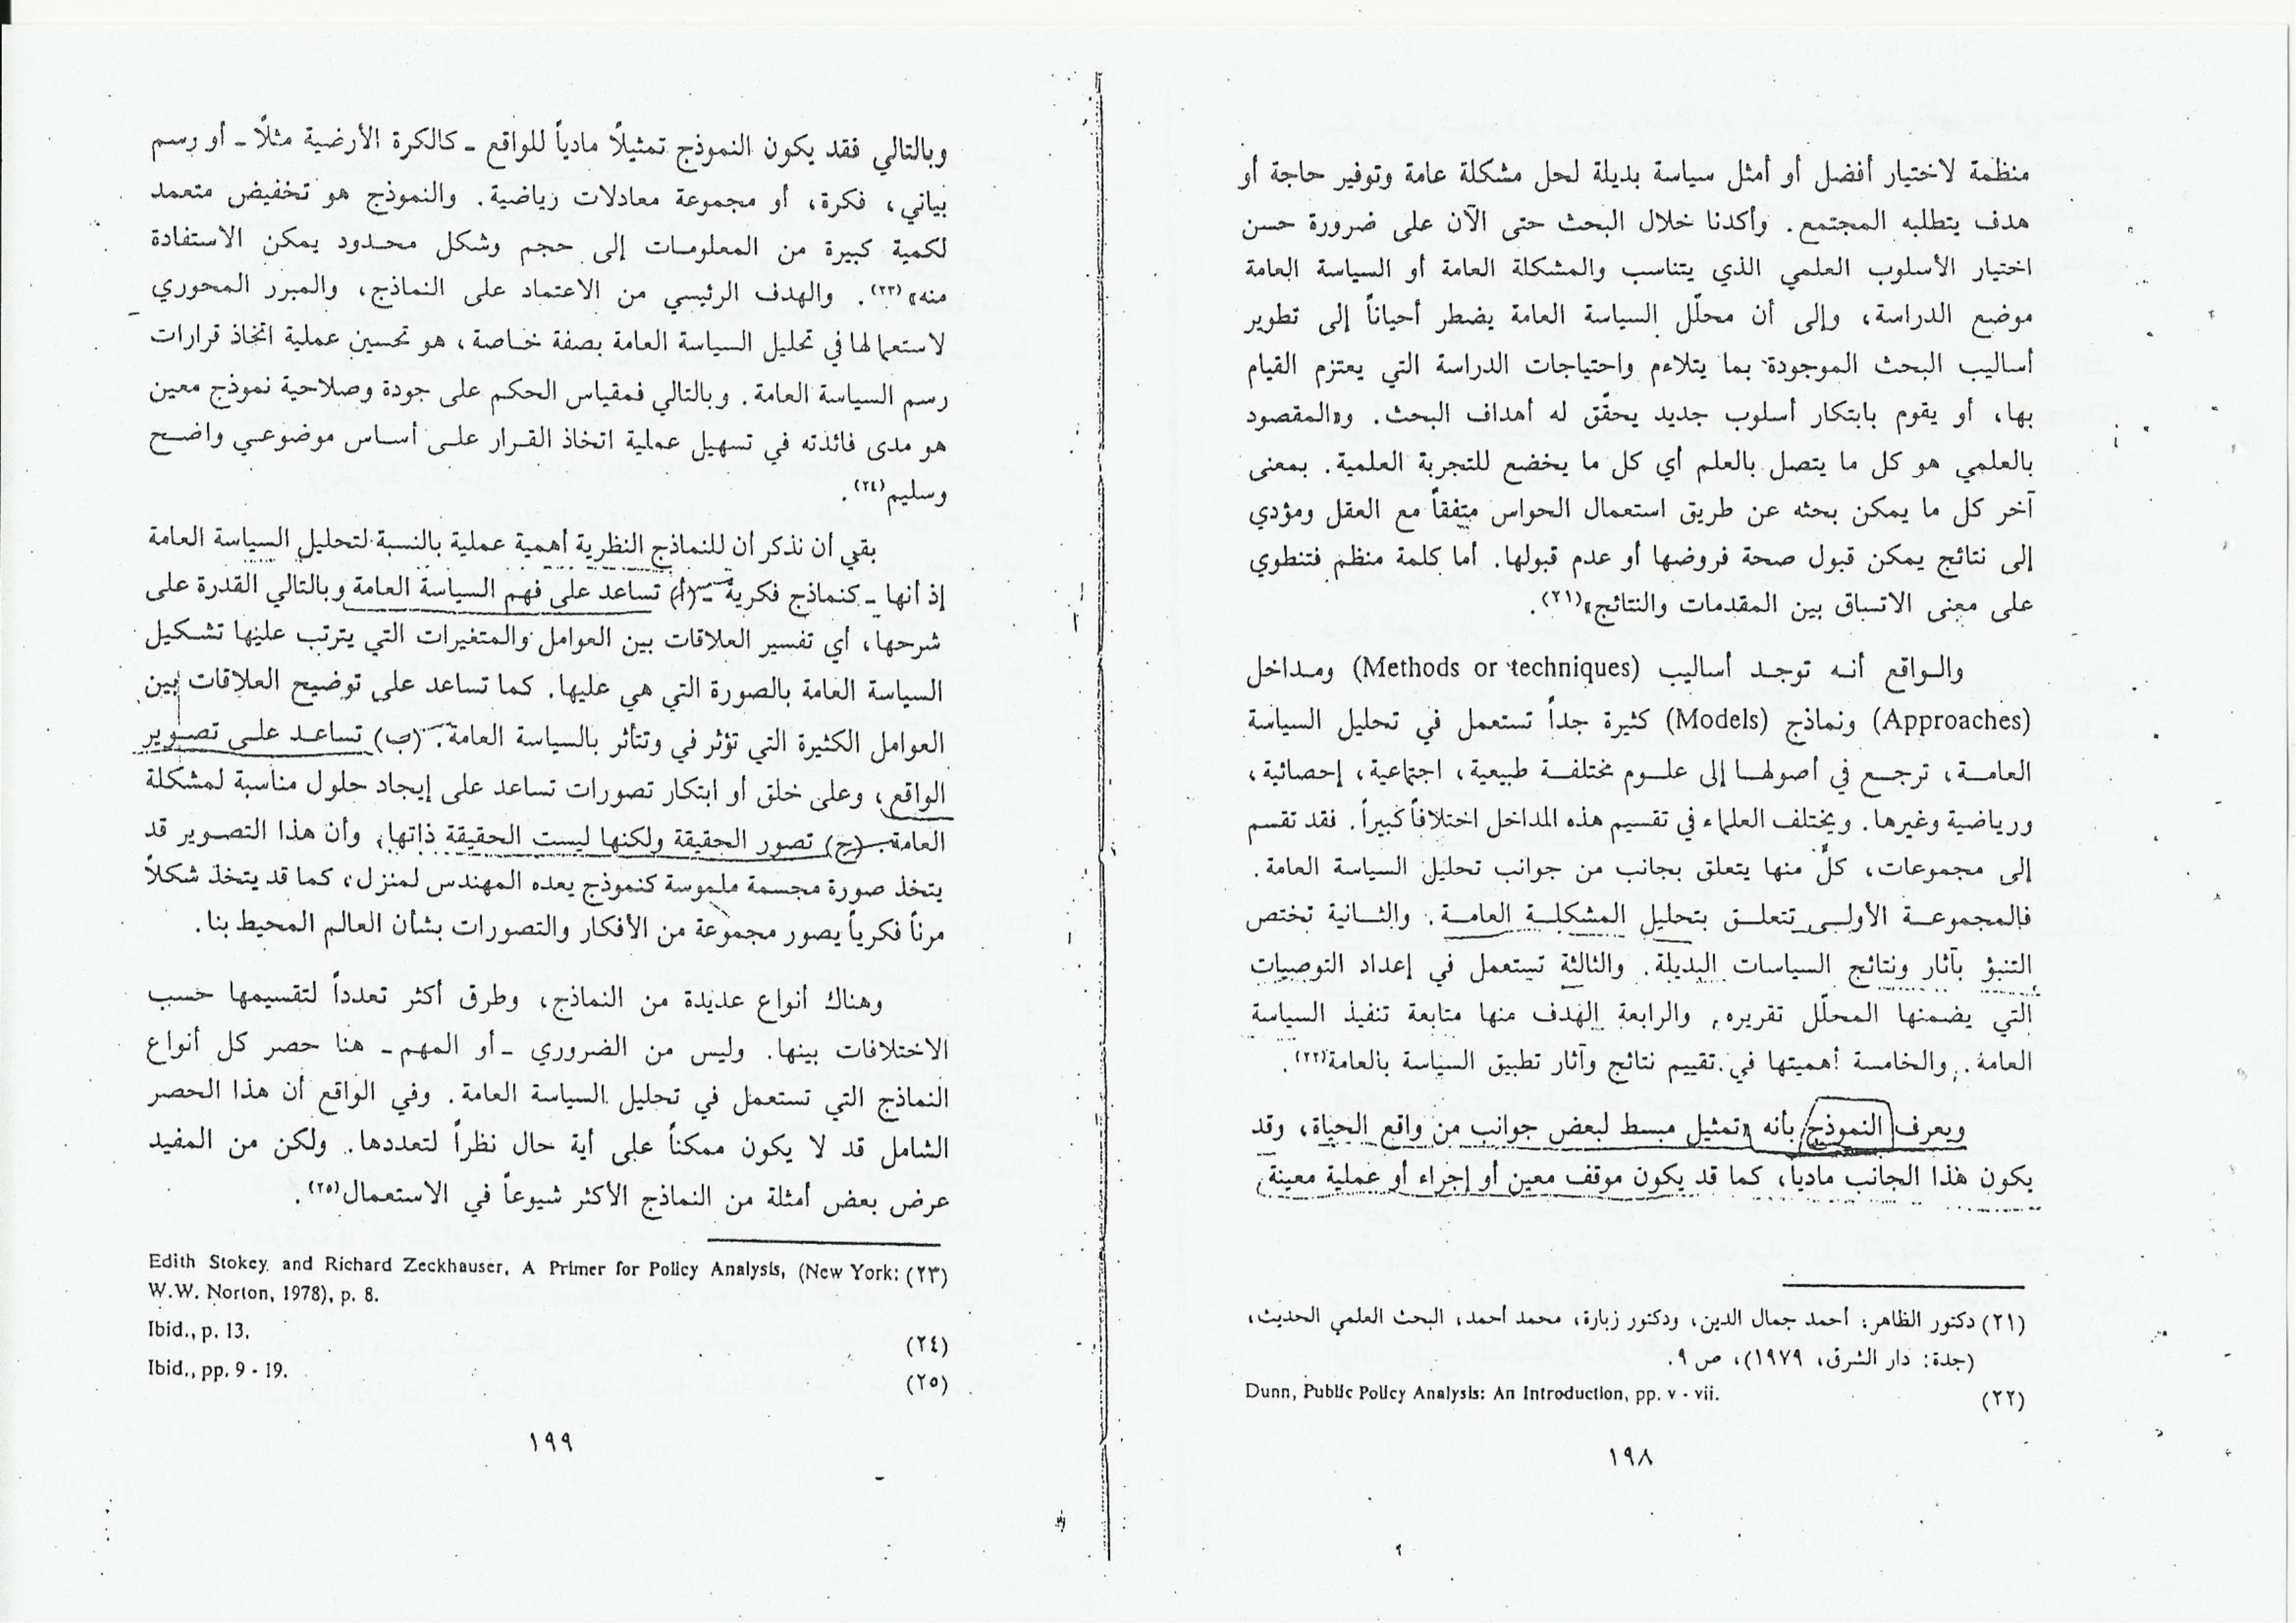 منظمة لاختيار أفضل أو أمثل سياسة بديلة لحل مشكلة عامة وتوفير حاجة أو
هدف يتطلبه المجتمع. وأكدنا خلال البحث حتى الآن على ضرورة حسن
اختيار الأسلوب العلمي الذي يتناسب والمشكلة العامة أو السياسة العامة
موضع الدراسة، وإلى أن محلّل السياسة العامة يضطر أحياناً إلى تطوير
أساليب البحث الموجودة بما يتلاءم واحتياجات الدراسة التي يعتزم القيام
بها، أو يقوم بابتكار أسلوب جديد يحقّق له أهداف البحث. و«المقصود
بالعلمي هو كل ما يتصل بالعلم أي كل ما يخضع للتجربة العلمية. بمعنى
آخر كل ما يمكن بحثه عن طريق استعمال الحواس متفقاً مع العقل ومؤدي
إلى نتائج يمكن قبول صحة فروضها أو عدم قبولها. أما كلمة منظم فتنطوي
على معنى الاتساق بين المقدمات والنتائج»(٢١).
والواقع أنه توجد أساليب (Methods or techniques) ومداخل
(Approaches) ونماذج (Models) كثيرة جداً تستعمل في تحليل السياسة
العامة، ترجع في أصولها إلى علوم مختلفة طبيعية، اجتماعية، إحصائية،
ورياضية وغيرها. ويختلف العلماء في تقسيم هذه المداخل اختلافاً كبيراً. فقد تقسم
إلى مجموعات، كلٌّ منها يتعلق بجانب من جوانب تحليل السياسة العامة.
فالمجموعة الأولى تتعلق بتحليل المشكلة العامة. والثانية تختص
التنبؤ بآثار ونتائج السياسات البديلة. والثالثة تستعمل في إعداد التوصيات
التي يضمنها المحلّل تقريره. والرابعة الهدف منها متابعة تنفيذ السياسة
العامة. والخامسة أهميتها في تقييم نتائج وآثار تطبيق السياسة بالعامة(٢٢).
ويعرف النموذج بأنه «تمثيل مبسط لبعض جوانب من واقع الحياة، وقد
يكون هذا الجانب مادياً، كما قد يكون موقف معين أو إجراء أو عملية معينة.
(٢١) دكتور الظاهر: أحمد جمال الدين، ودكتور زبارة، محمد أحمد، البحث العلمي الحديث،
(جدة: دار الشرق، ١٩٧٩)، ص ٩.
(٢٢) Dunn, Public Policy Analysis: An Introduction, pp. v - vii.
١٩٨
وبالتالي فقد يكون النموذج تمثيلاً مادياً للواقع - كالكرة الأرضية مثلاً - أو رسم
بياني، فكرة، أو مجموعة معادلات رياضية. والنموذج هو تخفيض متعمد
لكمية كبيرة من المعلومات إلى حجم وشكل محدود يمكن الاستفادة
منه»(٢٣). والهدف الرئيسي من الاعتماد على النماذج، والمبرر المحوري
لاستعمالها في تحليل السياسة العامة بصفة خاصة، هو تحسين عملية اتخاذ قرارات
رسم السياسة العامة. وبالتالي فمقياس الحكم على جودة وصلاحية نموذج معين
هو مدى فائدته في تسهيل عملية اتخاذ القرار على أساس موضوعي واضح
وسليم(٢٤).
بقي أن نذكر أن للنماذج النظرية أهمية عملية بالنسبة لتحليل السياسة العامة
إذ أنها - كنماذج فكرية - (أ) تساعد على فهم السياسة العامة وبالتالي القدرة على
شرحها، أي تفسير العلاقات بين العوامل والمتغيرات التي يترتب عليها تشكيل
السياسة العامة بالصورة التي هي عليها. كما تساعد على توضيح العلاقات بين
العوامل الكثيرة التي تؤثر في وتتأثر بالسياسة العامة. (ب) تساعد على تصوير
الواقع، وعلى خلق أو ابتكار تصورات تساعد على إيجاد حلول مناسبة لمشكلة
العامة. (ج) تصور الحقيقة ولكنها ليست الحقيقة ذاتها، وأن هذا التصوير قد
يتخذ صورة مجسمة ملموسة كنموذج يعده المهندس لمنزل، كما قد يتخذ شكلاً
مرناً فكرياً يصور مجموعة من الأفكار والتصورات بشأن العالم المحيط بنا.
وهناك أنواع عديدة من النماذج، وطرق أكثر تعدداً لتقسيمها حسب
الاختلافات بينها. وليس من الضروري - أو المهم - هنا حصر كل أنواع
النماذج التي تستعمل في تحليل السياسة العامة. وفي الواقع أن هذا الحصر
الشامل قد لا يكون ممكناً على أية حال نظراً لتعددها. ولكن من المفيد
عرض بعض أمثلة من النماذج الأكثر شيوعاً في الاستعمال(٢٥).
(٢٣) Edith Stokey and Richard Zeckhauser, A Primer for Policy Analysis, (New York:
W.W. Norton, 1978), p. 8.
(٢٤) Ibid., p. 13.
(٢٥) Ibid., pp. 9 - 19.
١٩٩